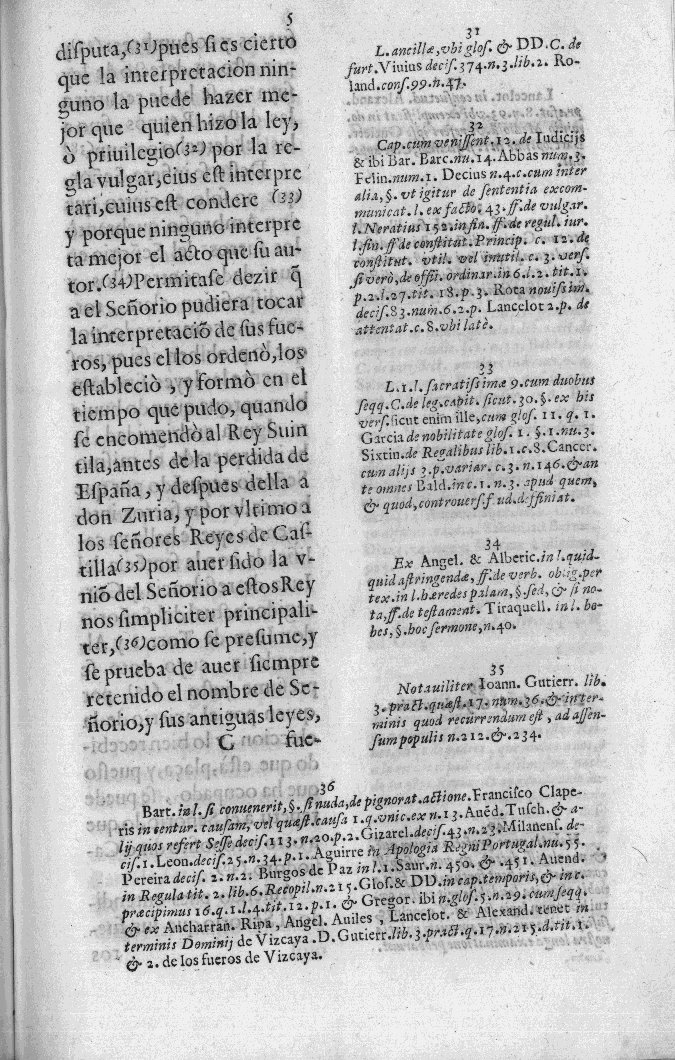 5
disputa,(31)pues si es cierto
que la interpretacion nin-
guno la puede hazer me-
jor que quien hizo la ley,
ò priuilegio(32)por la re-
gla vulgar,eius est interpre
tari,cuius est condere (33)
y porque ninguno interpre
ta mejor el acto que su au-
tor.(34)Permitase dezir q̃
a el Señorio pudiera tocar
la interpretaciõ de sus fue-
ros, pues el los ordenò,los
estableciò , y formò en el
tiempo que pudo, quando
se encomendò al Rey Suin
tila,antes de la perdida de
España , y despues della à
don Zuria, y por vltimo a
los señores Reyes de Cas-
tilla(35)por auer sido la v-
niõ del Señorio a estos Rey
nos simpliciter principali-
ter,(36)como se presume,y
se prueba de auer siempre
retenido el nombre de Se-
ñorio,y sus antiguas leyes,
C fue-
31
L. ancillæ, vbi glos. & DD. C. de
furt. Viuius decis. 374. n. 3. lib. 2. Ro-
land. cons. 99. n. 47.
32
Cap. cum venissent. 12. de Iudicijs
& ibi Bar. Barc. nu. 14. Abbas num. 3.
Felin. num. 1. Decius n. 4. c. cum inter
alia, §. vt igitur de sententia excom-
municat. l. ex facto. 43. ff. de vulgar.
l. Neratius 152. in fin. ff. de regul. iur.
l. fin. ff. de constitut. Princip. c. 12. de
constitut. vtil. vel inutil. c. 3. vers.
si verò, de offici. ordinar. in 6. l. 2. tit. 1.
p. 2. l. 27. tit. 18. p. 3. Rota nouissim.
decis. 83. num. 6. 2. p. Lancelot 2. p. de
attentat. c. 8. vbi latè.
33
L. 1. l. sacratissimæ 9. cum duobus
seqq. C. de leg. capit. sicut. 30. §. ex his
vers. sicut enim ille, cum glos. 11. q. 1.
Garcia de nobilitate glos. 1. §. 1. nu. 3.
Sixtin. de Regalibus lib. 1. c. 8. Cancer.
cum alijs 3. p. variar. c. 3. n. 146. & an
te omnes Bald. in c. 1. n. 3. apud quem,
& quod, controuers. f. ud. deffiniat.
34
Ex Angel. & Alberic. in l. quid-
quid astringendæ, ff. de verb. oblig. per
tex. in l. hæredes palam, §. sed, & si no-
ta, ff. de testament. Tiraquell. in l. bo-
bes, §. hoc sermone, n. 40.
35
Notauiliter Ioann. Gutierr. lib.
3. pract. quæst. 17. num. 36. & inter-
minis quod recurrendum est, ad assen-
sum populis n. 212. & 234.
36
Bart. in l. si conuenerit, §. si nuda, de pignorat. actione. Francisco Clape-
ris in centur. causam, vel quæst. causa 1. q. vnic. ex n. 13. Auẽd. Tusch. & a-
lij quos refert Sesse decis. 113. n. 20. p. 2. Gizarel. decis. 43. n. 23. Milanens. de-
cis. 1. Leon. decis. 25. n. 34. p. 1. Aguirre in Apologia Regni Portugal. nu. 55.
Pereira decis. 2. n. 2. Burgos de Paz in l. 1. Saur. n. 450. & .451. Auend.
in Regula tit. 2. lib. 6. Recopil. n. 215. Glos. & DD. in cap. temporis, & in c.
præcipimus 16. q. 1. l. 4. tit. 12. p. 1. & Gregor. ibi n. glos. 5. n. 29. cum seqq.
& ex Ancharran. Ripa , Angel. Auiles , Lancelot. & Alexand. tenet in
terminis Dominij de Vizcaya. D. Gutierr. lib. 3. pract. q. 17. n. 215. d. tit. 1.
& 2. de los fueros de Vizcaya.